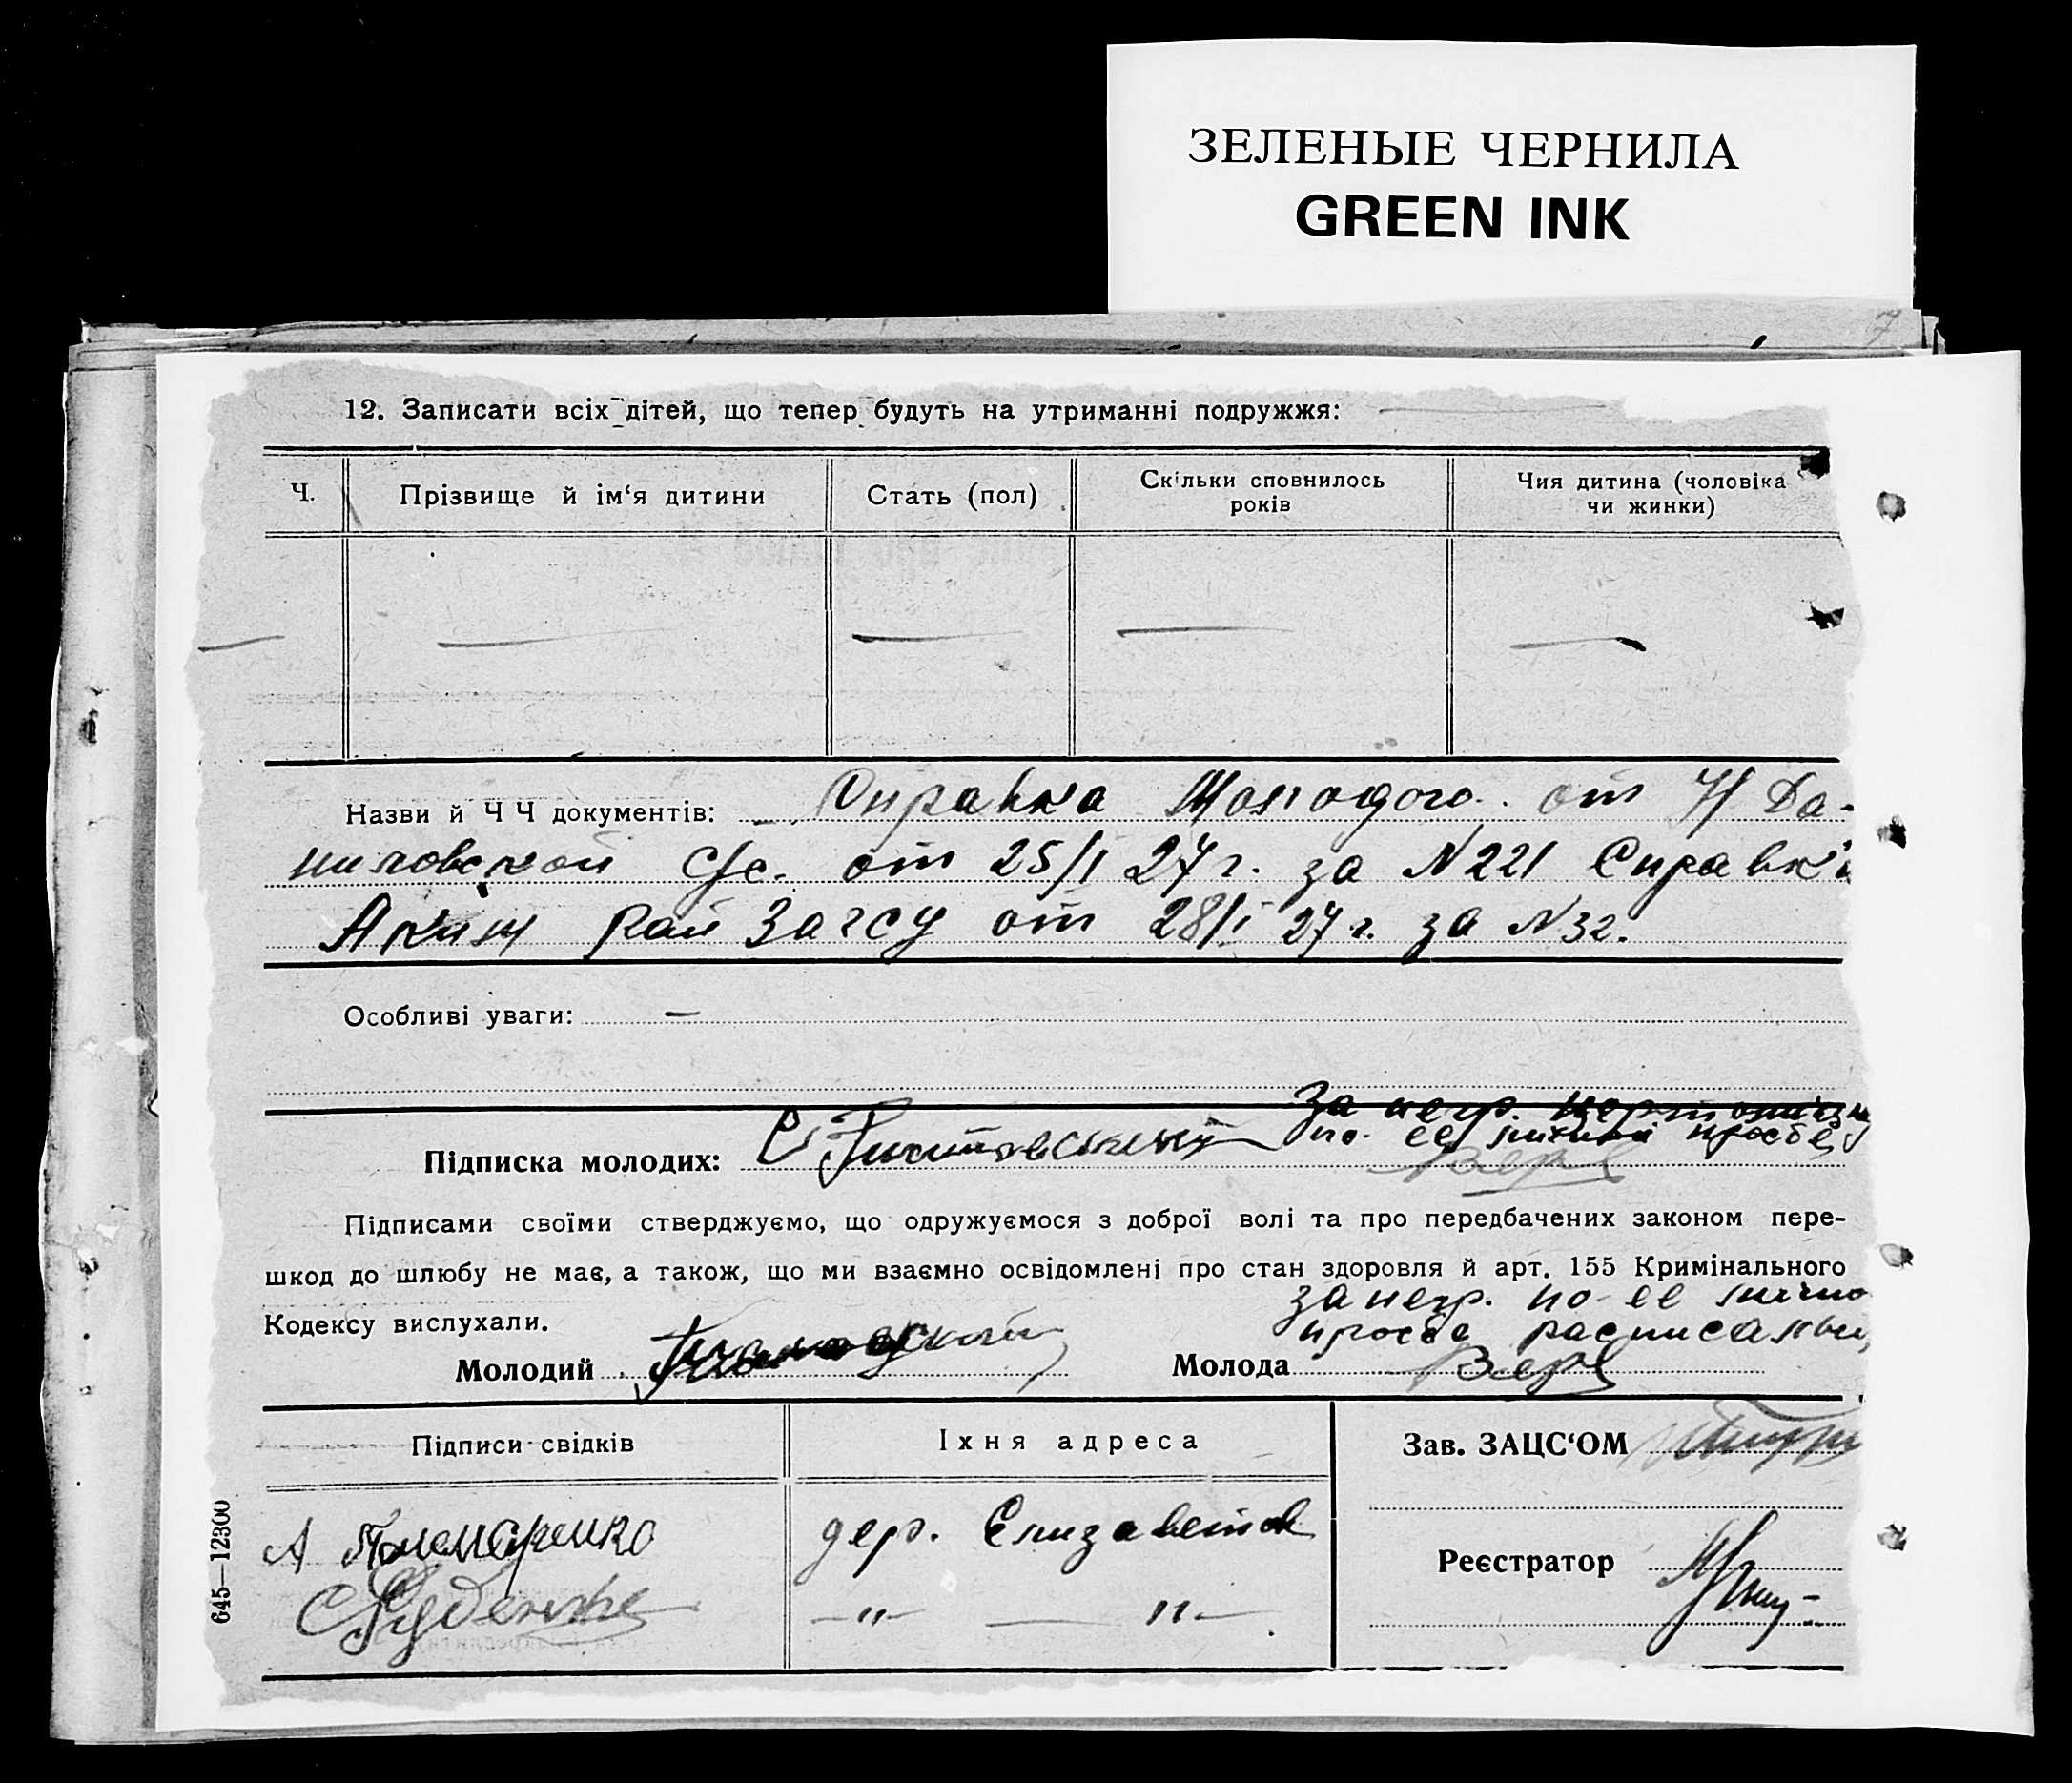 ЗЕЛЕНЫЕ ЧЕРНИЛА
GREEN INK
7
12. Записати всіх дітей, що тепер будуть на утриманні подружжя:
Ч.
Прізвище й ім‘я дитини
Стать (пол)
Скільки сповнилось
років
Чия дитина (чоловіка
чи жинки)
Назви й Ч Ч документів: Справка Молодого от Н Да-
ниловской с/с. от 25/I 27 г. за N 221 Справки
рай Загсу от 28/I 27 г. за N 32.
Особливі уваги: —
за негр.
Підписка молодих: по ее личной просьбе
Підписами своїми стверджуємо, що одружуємося з доброї волі та про передбачених законом пере-
шкод до шлюбу не має, а також, що ми взаємно освідомлені про стан здоровля й арт. 155 Кримінального
Кодексу вислухали.
за негр. по ее лично
просьбе расписалъ
Молодий
Молода
Підписи свідків
Їхня адреса
Зав. ЗАЦС‘ОМ
А Пономаренко
дер. Елизаветов
Реєстратор
Руденко
—"— — "—
645—12300